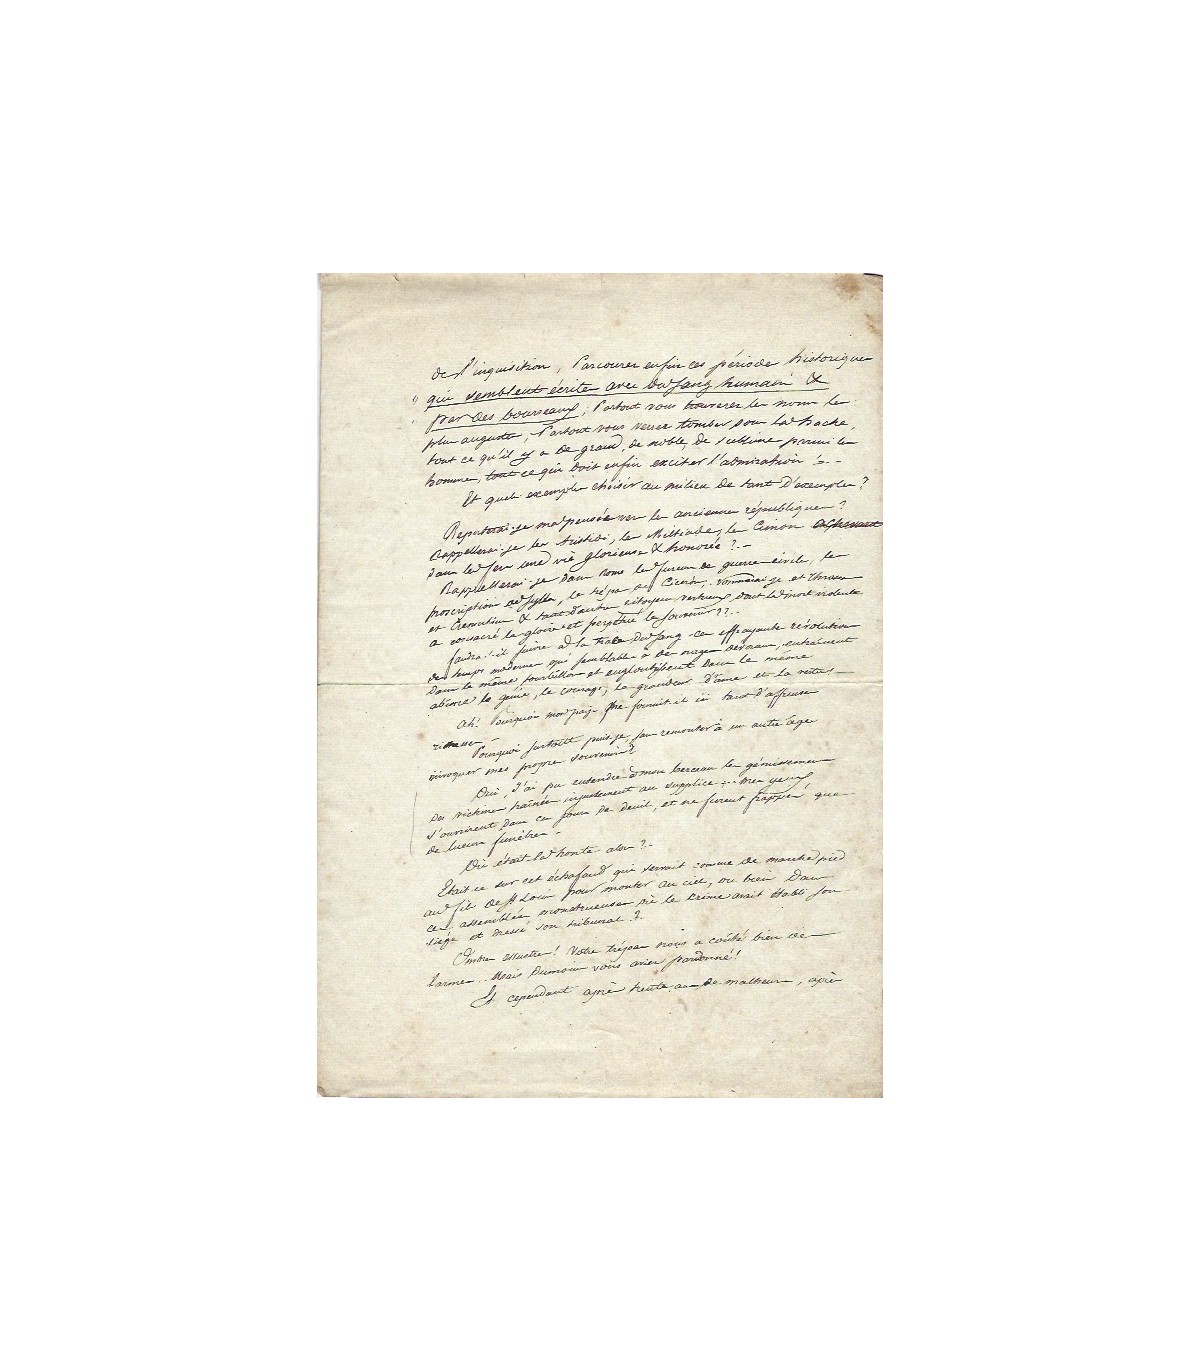 de l'inquisition, Parcourez enfin ces période historique
" qui semblent écrites avec du sang humain &
" par des bourreaux, Partout vous trouverez les noms les
plus augustes, Partout vous verrez tomber sous la hache,
tout ce qu'il y a de grand, de noble, de sublime parmi les
hommes, tout ce qui doit enfin exciter l'admiration !..
Et quels exemples choisir au milieu de tant d'exemples?
Reporterai-je ma pensée vers les anciennes républiques?
Rappellerai-je les Aristide, les Miltiade, les Cimon
dans les fers une vie glorieuse & honorée?
Rappellerai-je dans Rome les fureurs des guerres civiles, les
proscriptions de Sylla, le trépas de Cicéron, Nommerai-je et Thraséas
et Crémutius & tant d'autres citoyens vertueux dont la mort violente
a consacré la gloire et perpétré le souvenir??..
faudra-t-il suivre à la trace du sang ces effrayantes révolutions
des temps modernes qui semblables à des nuages désastreux, entraînent
dans le même tourbillon et engloutissent dans le même
abîme le génie, le courage, la grandeur d'âme et la vertu
Ah! Pourquoi mon pays me fournit-il ici tant d'affreuses
richesses
Pourquoi surtout puis-je, sans remonter à un autre âge
invoquer mes propres souvenirs?
Oui, J'ai pu entendre à mon berceau les gémissemens
des victimes traînées injustement au supplice... mes yeux
s'ouvrirent dans ces jours de deuil, et ne furent frappés que
de lueurs funèbres
Où était la honte alors?
Etait ce sur cet échafaud qui servait comme de marche pied
au fils de St Louis pour monter au ciel, ou bien dans
ces assemblées monstrueuses où le crime avait établi son
siège et dressé son tribunal?
Ombre illustre! Votre trépas nous a coûté bien des
larmes... Mais Dumoins vous aviez pardonné!
Et cependant après trente ans de malheurs, après